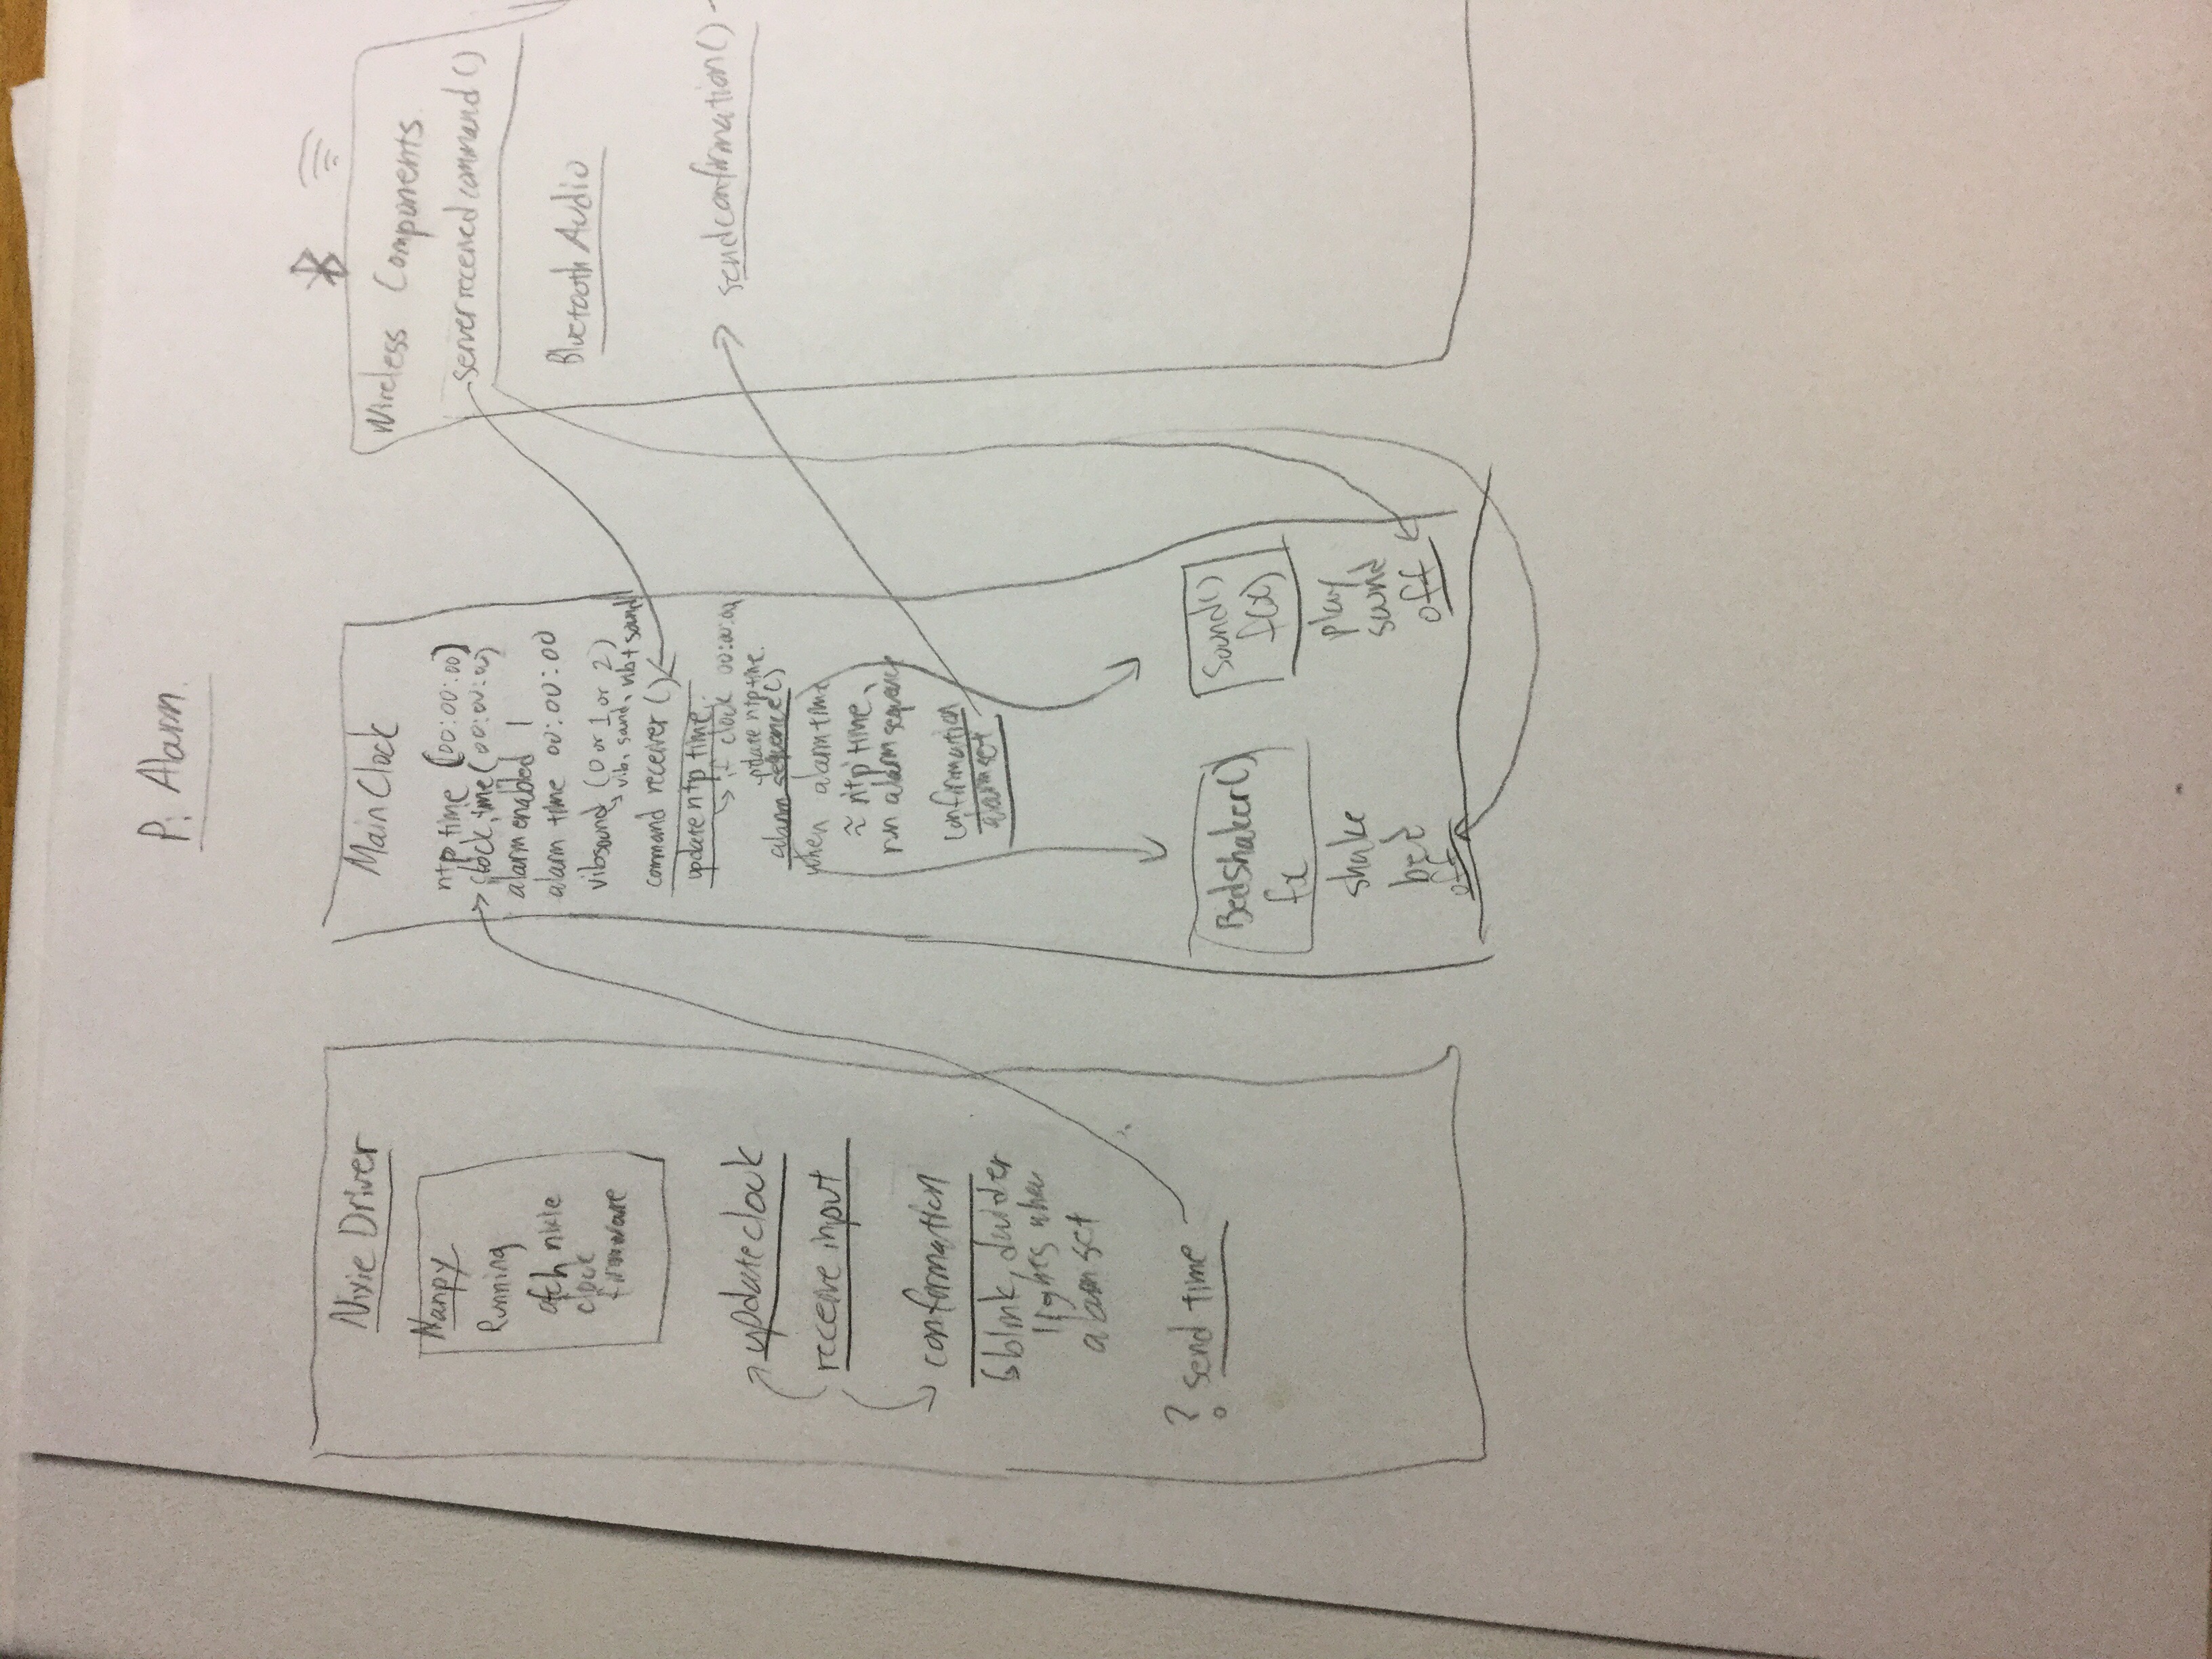 Pi Alarm
Nixie Driver
Nanpy
Running
afch nixie
clock
firmware
updateclock
receive input
confirmation
blink, divider
lights when
alarm set
? send time
Main Clock
ntp time (00:00:00)
clock time (00:00:00)
alarm enabled 1
alarm time 00:00:00
vibsound (0 or 1 or 2)
vib, sound, vib+sound
command receiver ()
update ntp time
if clock 00:00:00
update ntp time.
alarm sequence()
when alarm time
≈ ntp time,
run alarm sequence
confirmation
alarm set
BedShaker()
fx
shake
bed
off
Sound()
f(x)
play
sound
off
Wireless Components
server received command ()
Bluetooth Audio
sendconfirmation()